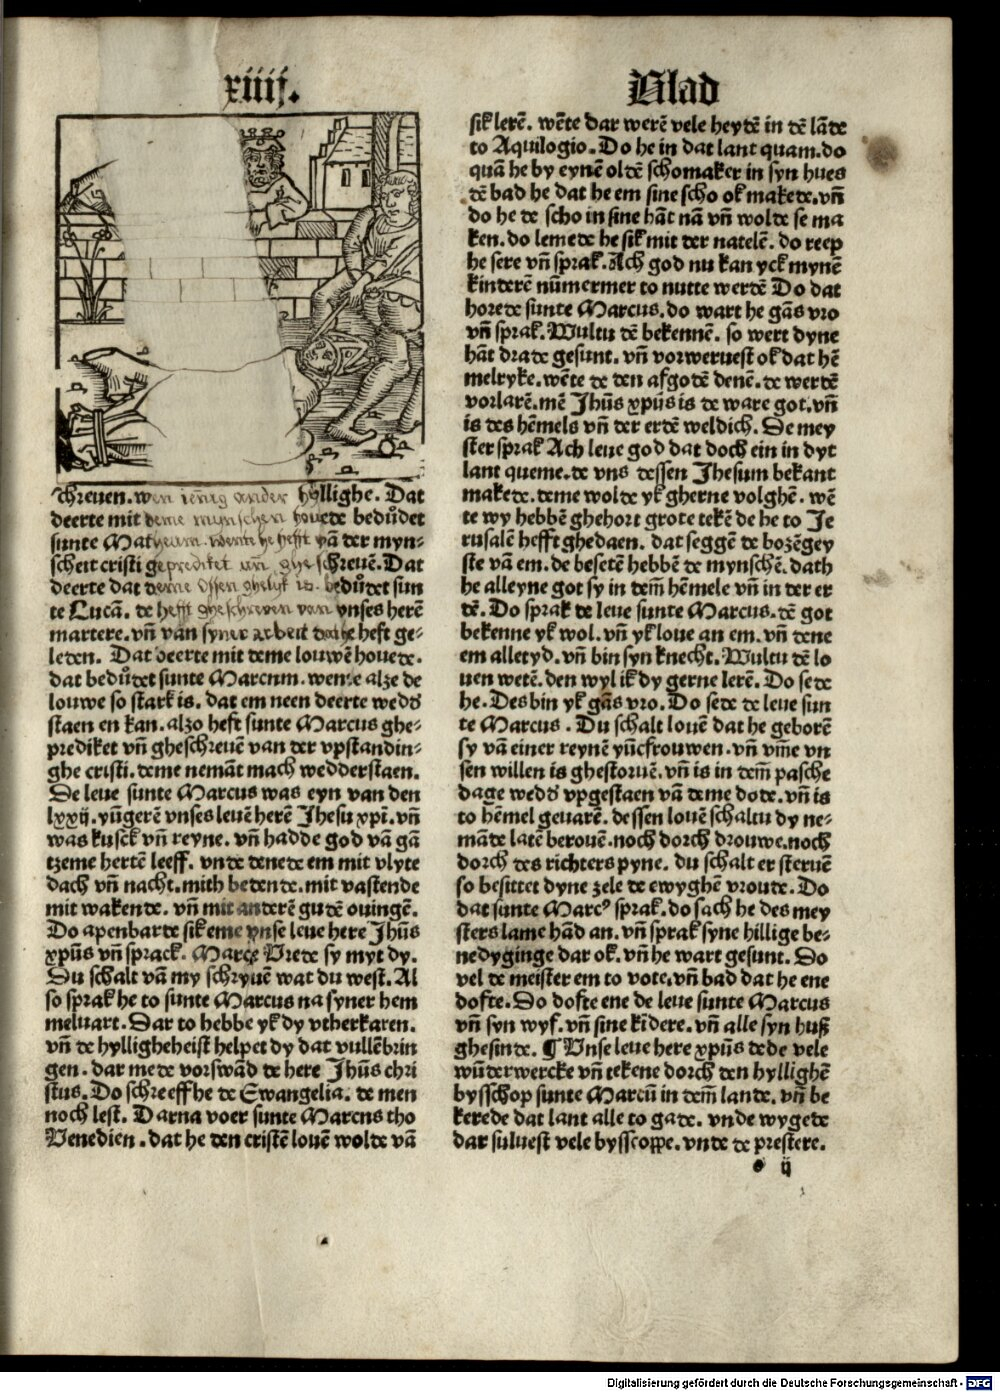 xiiij.
Blad
schreven. wen iennig ander hyllighe. Dat
deerte mit deme mynschen hovede bedůdet
sunte Matheum. wente he hefft vā der myn-
scheit cristi geprediket vn̄ ghe schrevē. Dat
deerte dat deme Ossen ghelijk is. bedůdet sun
te Lucā. de hefft gheschreven van vnses herē
martere. vn̄ van syner arbeit de he heft ge-
leden. Dat deerte mit deme louwē houede.
dat bedůdet sunte Marcum. wente alze de
louwe so stark is. dat em neen deerte weds
staen en kan. alzo heft sunte Marcus ghe-
prediket vn̄ gheschreuē van der vpstandin-
ghe cristi. deme nemāt mach wedderstaen.
De leue sunte Marcus was eyn van den
lxxij. yūgerē vnses leuē herē Jhesu xpi. vn̄
was kusck vn̄ reyne. vn̄ hadde god vā gā
tzeme hertē leeff. vnde denede em mit vlyte
dach vn̄ nacht. mith bedende. mit vastende
mit wakende. vn̄ mit anderē gudē ouingē.
Do apenbarde sik eme vnse leue here Jhūs
xpūs vn̄ sprack. Marce Vrede sy myt dy.
Du schalt vā my schryuē wat du west. Al
so sprak he to sunte Marcus na syner hem
meluart. Dar to hebbe yk dy vtherkaren.
vn̄ de hyllighe heist helpet dy dat vullēbrin
gen. dar mede vorswād de here Jhūs chri
stus. Do schreeff he de Ewangelia. de men
noch lest. Darna voer sunte Marcus tho
Venedien. dat he den cristē louē wolde vā
sik lerē. wēte dar werē vele heydē in dē lāde
to Aquilogio. Do he in dat lant quam. do
quā he by eynē oldē schomaker in syn hues
dē bad he dat he em sine scho ok makede. vn̄
do he de scho in sine hāt nā vn̄ wolde se ma
ken. do lemede he sik mit der natelē. do reep
he sere vn̄ sprak. Ach god nu kan yck mynē
kinderē nūmermer to nutte werdē Do dat
horede sunte Marcus. do wart he gās vro
vn̄ sprak. Wultu dē bekennē. so wert dyne
hāt drade gesunt. vn̄ vorweruest ok dat hē
melryke. wēte de den afgodē denē. de werdē
vorlarē. mē Jhūs xpūs is de ware got. vn̄
is des hēmels vn̄ der erdē weldich. De mey
ster sprak Ach leue god dat doch ein in dyt
lant queme. de vns dessen Jhesum bekant
makede. deme wolde yk gherne volghē. wē
te wy hebbē ghehort grote tekē de he to Je
rusalē hefft ghedaen. dat seggē de bozēgey
ste vā em. de besetē hebbē de mynschē. dath
he alleyne got sy in dem̄ hēmele vn̄ in der er
dē. Do sprak de leue sunte Marcus. dē got
bekenne yk wol. vn̄ yk loue an em. vn̄ dene
em alletyd. vn̄ bin syn knecht. Wultu dē lo
uen wetē. den wyl ik dy gerne lerē. Do sede
he. Des bin yk gās vro. Do sede de leue sun
te Marcus. Du schalt louē dat he geborē
sy vā einer reynē yūcfrouwen. vn̄ vm̄e vn
sen willen is ghestoruē. vn̄ is in dem̄ pasche
dage weds vpgestaen vā deme dode. vn̄ is
to hēmel geuarē. dessen louē schaltu dy ne-
māde latē berouē. noch dorch drouwe. noch
dorch des richters pyne. du schalt er steruē
so besittet dyne zele de ewyghē vroude. Do
dat sunte Marcꝰ sprak. do sach he des mey
sters lame hād an. vn̄ sprak syne hillige be-
nedyginge dar ok. vn̄ he wart gesunt. Do
vel de meister em to vote. vn̄ bad dat he ene
dofte. Do dofte ene de leue sunte Marcus
vn̄ syn wyf. vn̄ sine kīdere. vn̄ alle syn huß
ghesinde. ¶ Vnse leue here xpūs dede vele
wūderwercke vn̄ tekene dorch den hyllighē
bysschop sunte Marcū in dem̄ lande. vn̄ be
kerede dat lant alle to gade. vnde wygede
dar suluest vele bysscoppe. vnde de prestere.
ij
Digitalisierung gefördert durch die Deutsche Forschungsgemeinschaft - DFG